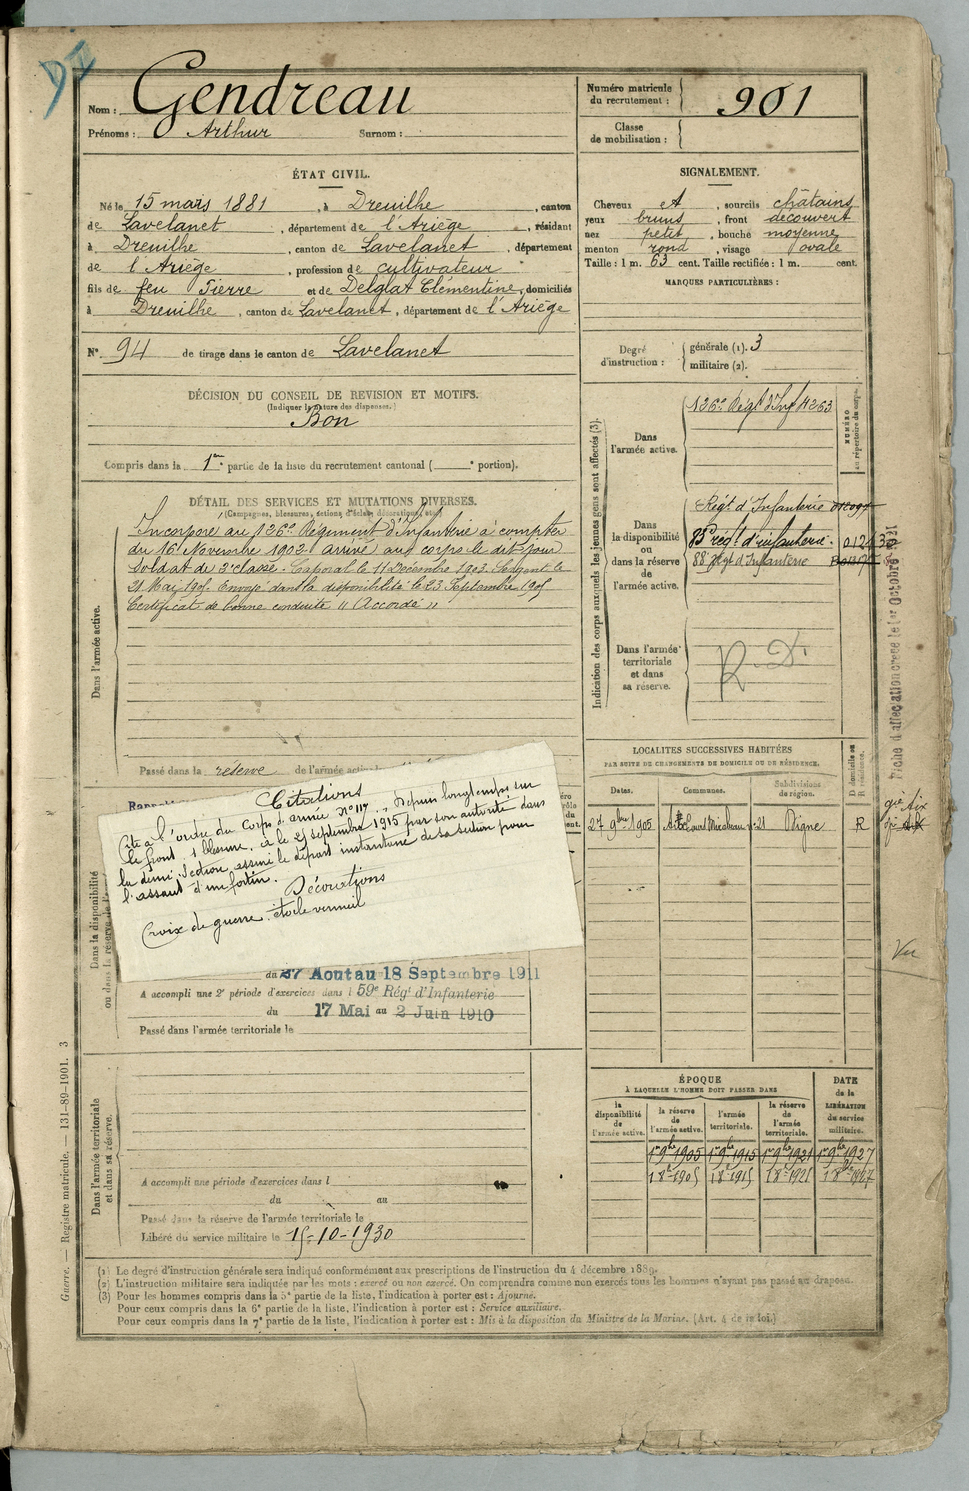 Nom : Gendreau
Prénoms : Arthur Surnom :
Numéro matricule du recrutement : 901
Classe de mobilisation :
ÉTAT CIVIL.
Né le 15 mars 1881, à Dreuilhe, canton
de Lavelanet, département de l'Ariège, résidant
à Dreuilhe, canton de Lavelanet, département
de l'Ariège, profession de cultivateur
fils de feu Pierre et de Delglat Clémentine, domiciliés
à Dreuilhe, canton de Lavelanet, département de l'Ariège
N° 94 de tirage dans le canton de Lavelanet
SIGNALEMENT.
Cheveux et, sourcils châtains
yeux bruns, front découvert
nez petit, bouche moyenne
menton rond, visage ovale
Taille : 1 m. 63 cent. Taille rectifiée : 1 m. cent.
MARQUES PARTICULIÈRES :
Degré d'instruction : générale (1). 3
militaire (2).
DÉCISION DU CONSEIL DE REVISION ET MOTIFS.
(Indiquer la nature des dispenses.)
Bon
Compris dans la 1re partie de la liste du recrutement cantonal ( e portion).
DÉTAIL DES SERVICES ET MUTATIONS DIVERSES.
(Campagnes, blessures, actions d'éclat, décorations, etc.)
Dans l'armée active.
Incorporé au 126e Régiment d'Infanterie à compter
du 16 Novembre 1902. arrivé au corps le dit jour
Soldat de 2e classe. Caporal le 11 Décembre 1903. Sergent le
21 Mai 1905. Envoyé dans la disponibilité le 23 Septembre 1905
Certificat de bonne conduite "Accordé"
Passé dans la réserve de l'armée active
Indication des corps auxquels les jeunes gens sont affectés (3).
NUMÉRO au répertoire du corps.
Dans l'armée active.
126e Régt d'Inf 4263
Dans la disponibilité ou dans la réserve de l'armée active.
Régt d'Infanterie
85e régt d'infanterie.
88e Régt d'Infanterie
Dans l'armée territoriale et dans sa réserve.
R. D.
LOCALITÉS SUCCESSIVES HABITÉES
PAR SUITE DE CHANGEMENTS DE DOMICILE OU DE RÉSIDENCE.
Dates. Communes. Subdivisions de région. D domicile ou R résidence.
27 9bre 1905 Mirabeau Digne R
Aix
Vu
Citations
Cité à l'ordre du Corps d'armée N° 117 "Depuis longtemps sur
le front, 1 blessure, a le 25 septembre 1915 par son autorité dans
la demi-section, assuré le départ instantané de sa section pour
l'assaut d'un fortin.
Décorations
Croix de guerre. étoile vermeil
Dans la disponibilité
ou dans la réserve de l'
du 27 Août au 18 Septembre 1911
A accompli une 2e période d'exercices dans l 59e Régt d'Infanterie
du 17 Mai au 2 Juin 1910
Passé dans l'armée territoriale le
Dans l'armée territoriale et dans sa réserve.
A accompli une période d'exercices dans l
du au
Passé dans la réserve de l'armée territoriale le
Libéré du service militaire le 15-10-1930
ÉPOQUE
À LAQUELLE L'HOMME DOIT PASSER DANS
la disponibilité de l'armée active. la réserve de l'armée active. l'armée territoriale. la réserve de l'armée territoriale.
DATE de la LIBÉRATION du service militaire.
1er 9bre 1905 1er 9bre 1915 1er 9bre 1921 1er 9bre 1927
1 8bre 1905 1 8bre 1915 1 8bre 1921 1 8bre 1927
(1) Le degré d'instruction générale sera indiqué conformément aux prescriptions de l'instruction du 4 décembre 1889.
(2) L'instruction militaire sera indiquée par les mots : exercé ou non exercé. On comprendra comme non exercés tous les hommes n'ayant pas passé au drapeau.
(3) Pour les hommes compris dans la 5e partie de la liste, l'indication à porter est : Ajourné.
Pour ceux compris dans la 6e partie de la liste, l'indication à porter est : Service auxiliaire.
Pour ceux compris dans la 7e partie de la liste, l'indication à porter est : Mis à la disposition du Ministre de la Marine. (Art. 4 de la loi.)
Guerre. — Registre matricule. — 131-89-1901. 3